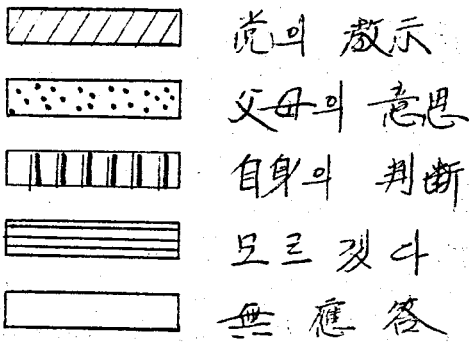 党의 敎示
父母의 意思
自身의 判断
모르겠다
無應答